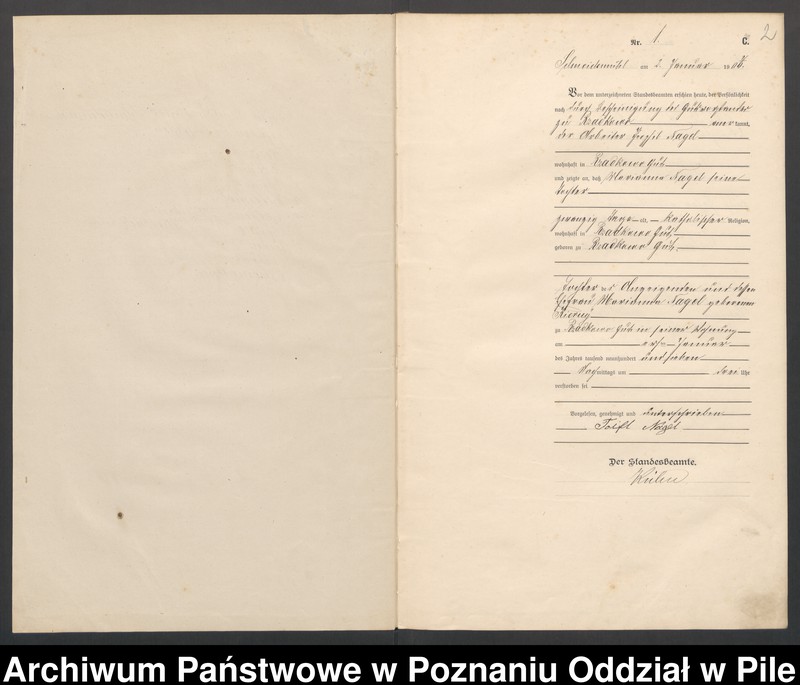 2
Nr. 1 C.
Schneidemühl am 2. Januar 19
Vor dem unterzeichneten Standesbeamten erschien heute, der Persönlichkeit
nach durch Bescheinigung des Gutsvorstandes
zu kannt,
der Arbeiter Josef Nagel
wohnhaft in Gut
und zeigte an, daß Marianna Nagel seine
Tochter
zwanzig Tage alt, katholischer Religion,
wohnhaft in Gut
geboren zu Gut
Tochter des Anzeigenden und dessen
Ehefrau Marianna Nagel geborenen
zu Gut in seiner Wohnung
am ersten Januar
des Jahres tausend neunhundert und sieben
Nachmittags um Uhr
verstorben sei
Vorgelesen, genehmigt und unterschrieben
Nagel
Der Standesbeamte.
Archiwum Państwowe w Poznaniu Oddział w Pile